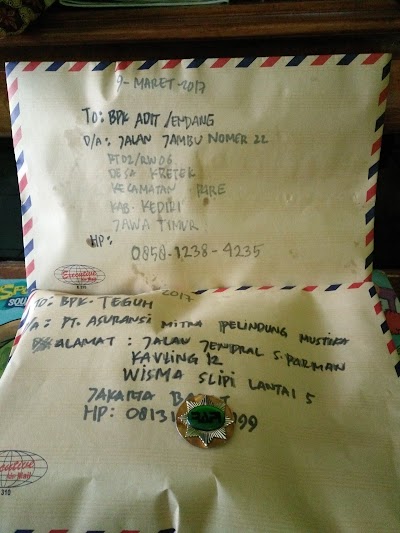 9-MARET-2017
TO: BPK ADIT/ENDANG
D/A: JALAN JAMBU NOMER 22
RT02/RW06
DESA KRETEK
KECAMATAN PARE
KAB. KEDIRI
JAWA TIMUR
HP:
0858-1238-4235
Executive
Air Mail
2017
TO: BPK. TEGUH
/A: PT. ASURANSI MITRA PELINDUNG MUSTIKA
ALAMAT: JALAN JENDRAL S. PARMAN
KAVLING 12
WISMA SLIPI LANTAI 5
JAKARTA
HP: 0813 99
Air Mail
310